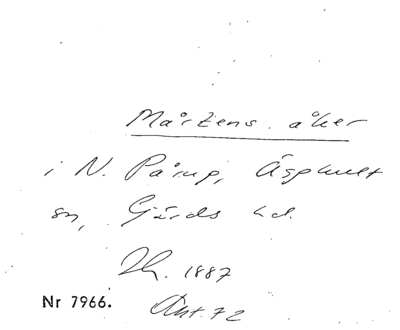 Mårtens åker
i N. Pårup, Äsphult
sn, Gärds hd.
Th. 1887
Nr 7966. Ant. 72